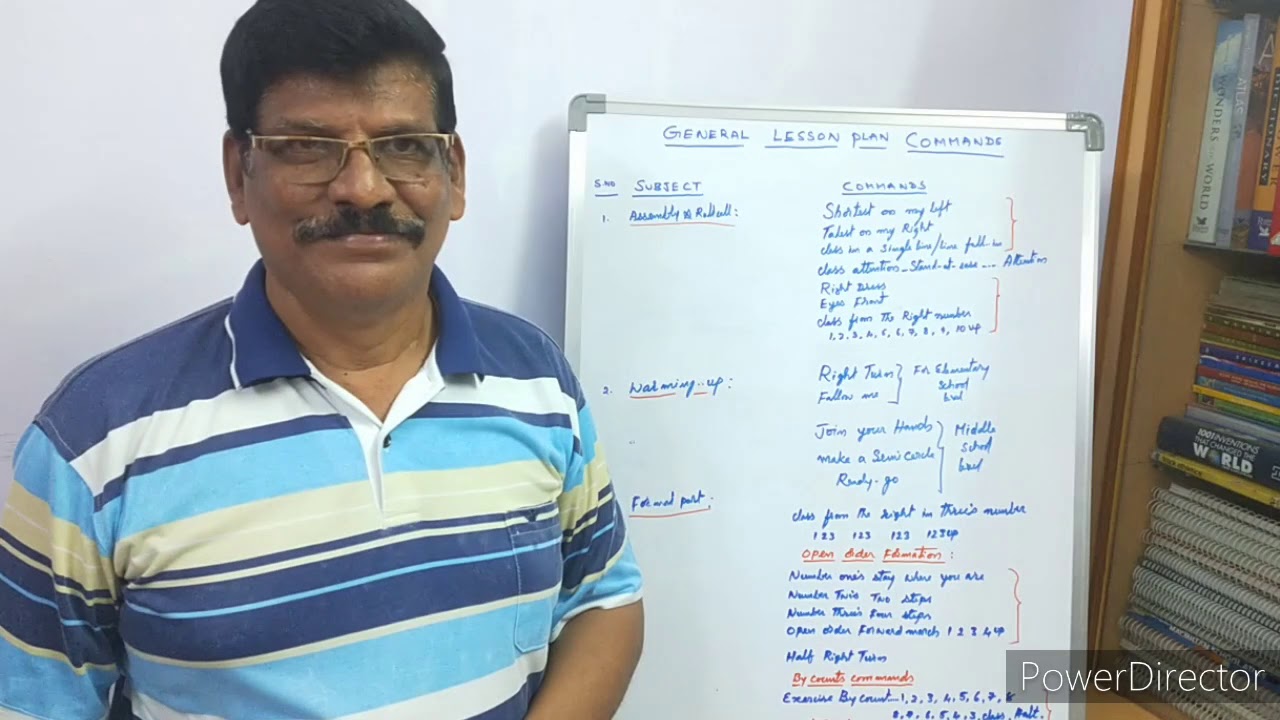 GENERAL LESSON PLAN COMMANDS
S.NO SUBJECT COMMANDS
1. Assembly & Rollcall:
Shortest on my left
Talest on my Right
class in a single line/line fall-in
class attention_Stand-at-ease .... Attention
Right Dress
Eyes Front
class from the Right number
1, 2, 3, 4, 5, 6, 7, 8, 9, 10 up
2. Warming-up:
Right Turn
Follow me
For Elementary
school
level
Join your Hands
make a Semi circle
Ready-go
Middle
School
level
Formal part:
class from the right in three's number
1 2 3 1 2 3 1 2 3 1 2 3 up
Open order Formation:
Number one's stay where you are
Number Two's Two steps
Number three's four steps
Open order Forward march 1 2 3 4 up
Half Right Turn
By counts commands
Exercise By count....1, 2, 3, 4, 5, 6, 7, 8
8, 7, 6, 5, 4, 3, class, Halt.
WONDERS WORLD
ATLAS
DICTIONARY
1001 INVENTIONS
THAT CHANGED THE
WORLD
PowerDirector